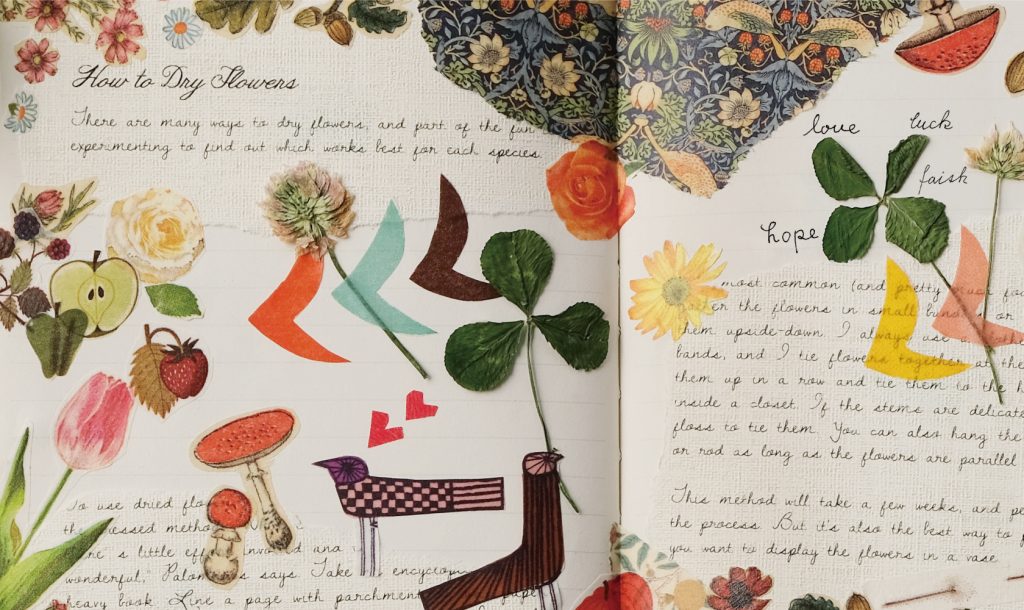 How to Dry Flowers
There are many ways to dry flowers, and part of the fun
experimenting to find out which works best for each species.
To use dried flo
the pressed metho
ere's little eff invo ed and
wonderful," Palom s says. Take encyclop
heavy book. Line a page with parchment
love
luck
faith
hope
most common (and pretty much foo
the flowers in small bun or
them upside-down. I always use
bands, and I tie flowers together at the
them up in a row and tie them to the h
inside a closet. If the stems are delicate
floss to tie them. You can also hang the
or rod as long as the flowers are parallel
This method will take a few weeks, and pe
the process. But it's also the best way to p
you want to display the flowers in a vase